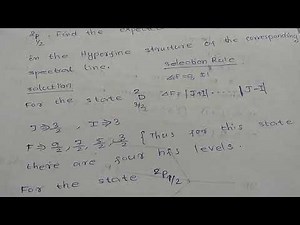 ²P₁/₂. Find the
in the Hyperfine structure of the corresponding
spectral line.
Selection Rule
solution
ΔF=0, ±1
For the state ²D₃/₂
F = |J+I| ...... |J-I|
J = 3/2, I = 3
F = 9/2, 7/2, 5/2, 3/2 { Thus for this state
there are four hfs levels.
For the state ²P₁/₂